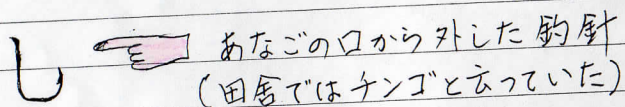 し あなごの口から外した釣針
(田舎ではチンゴと云っていた)